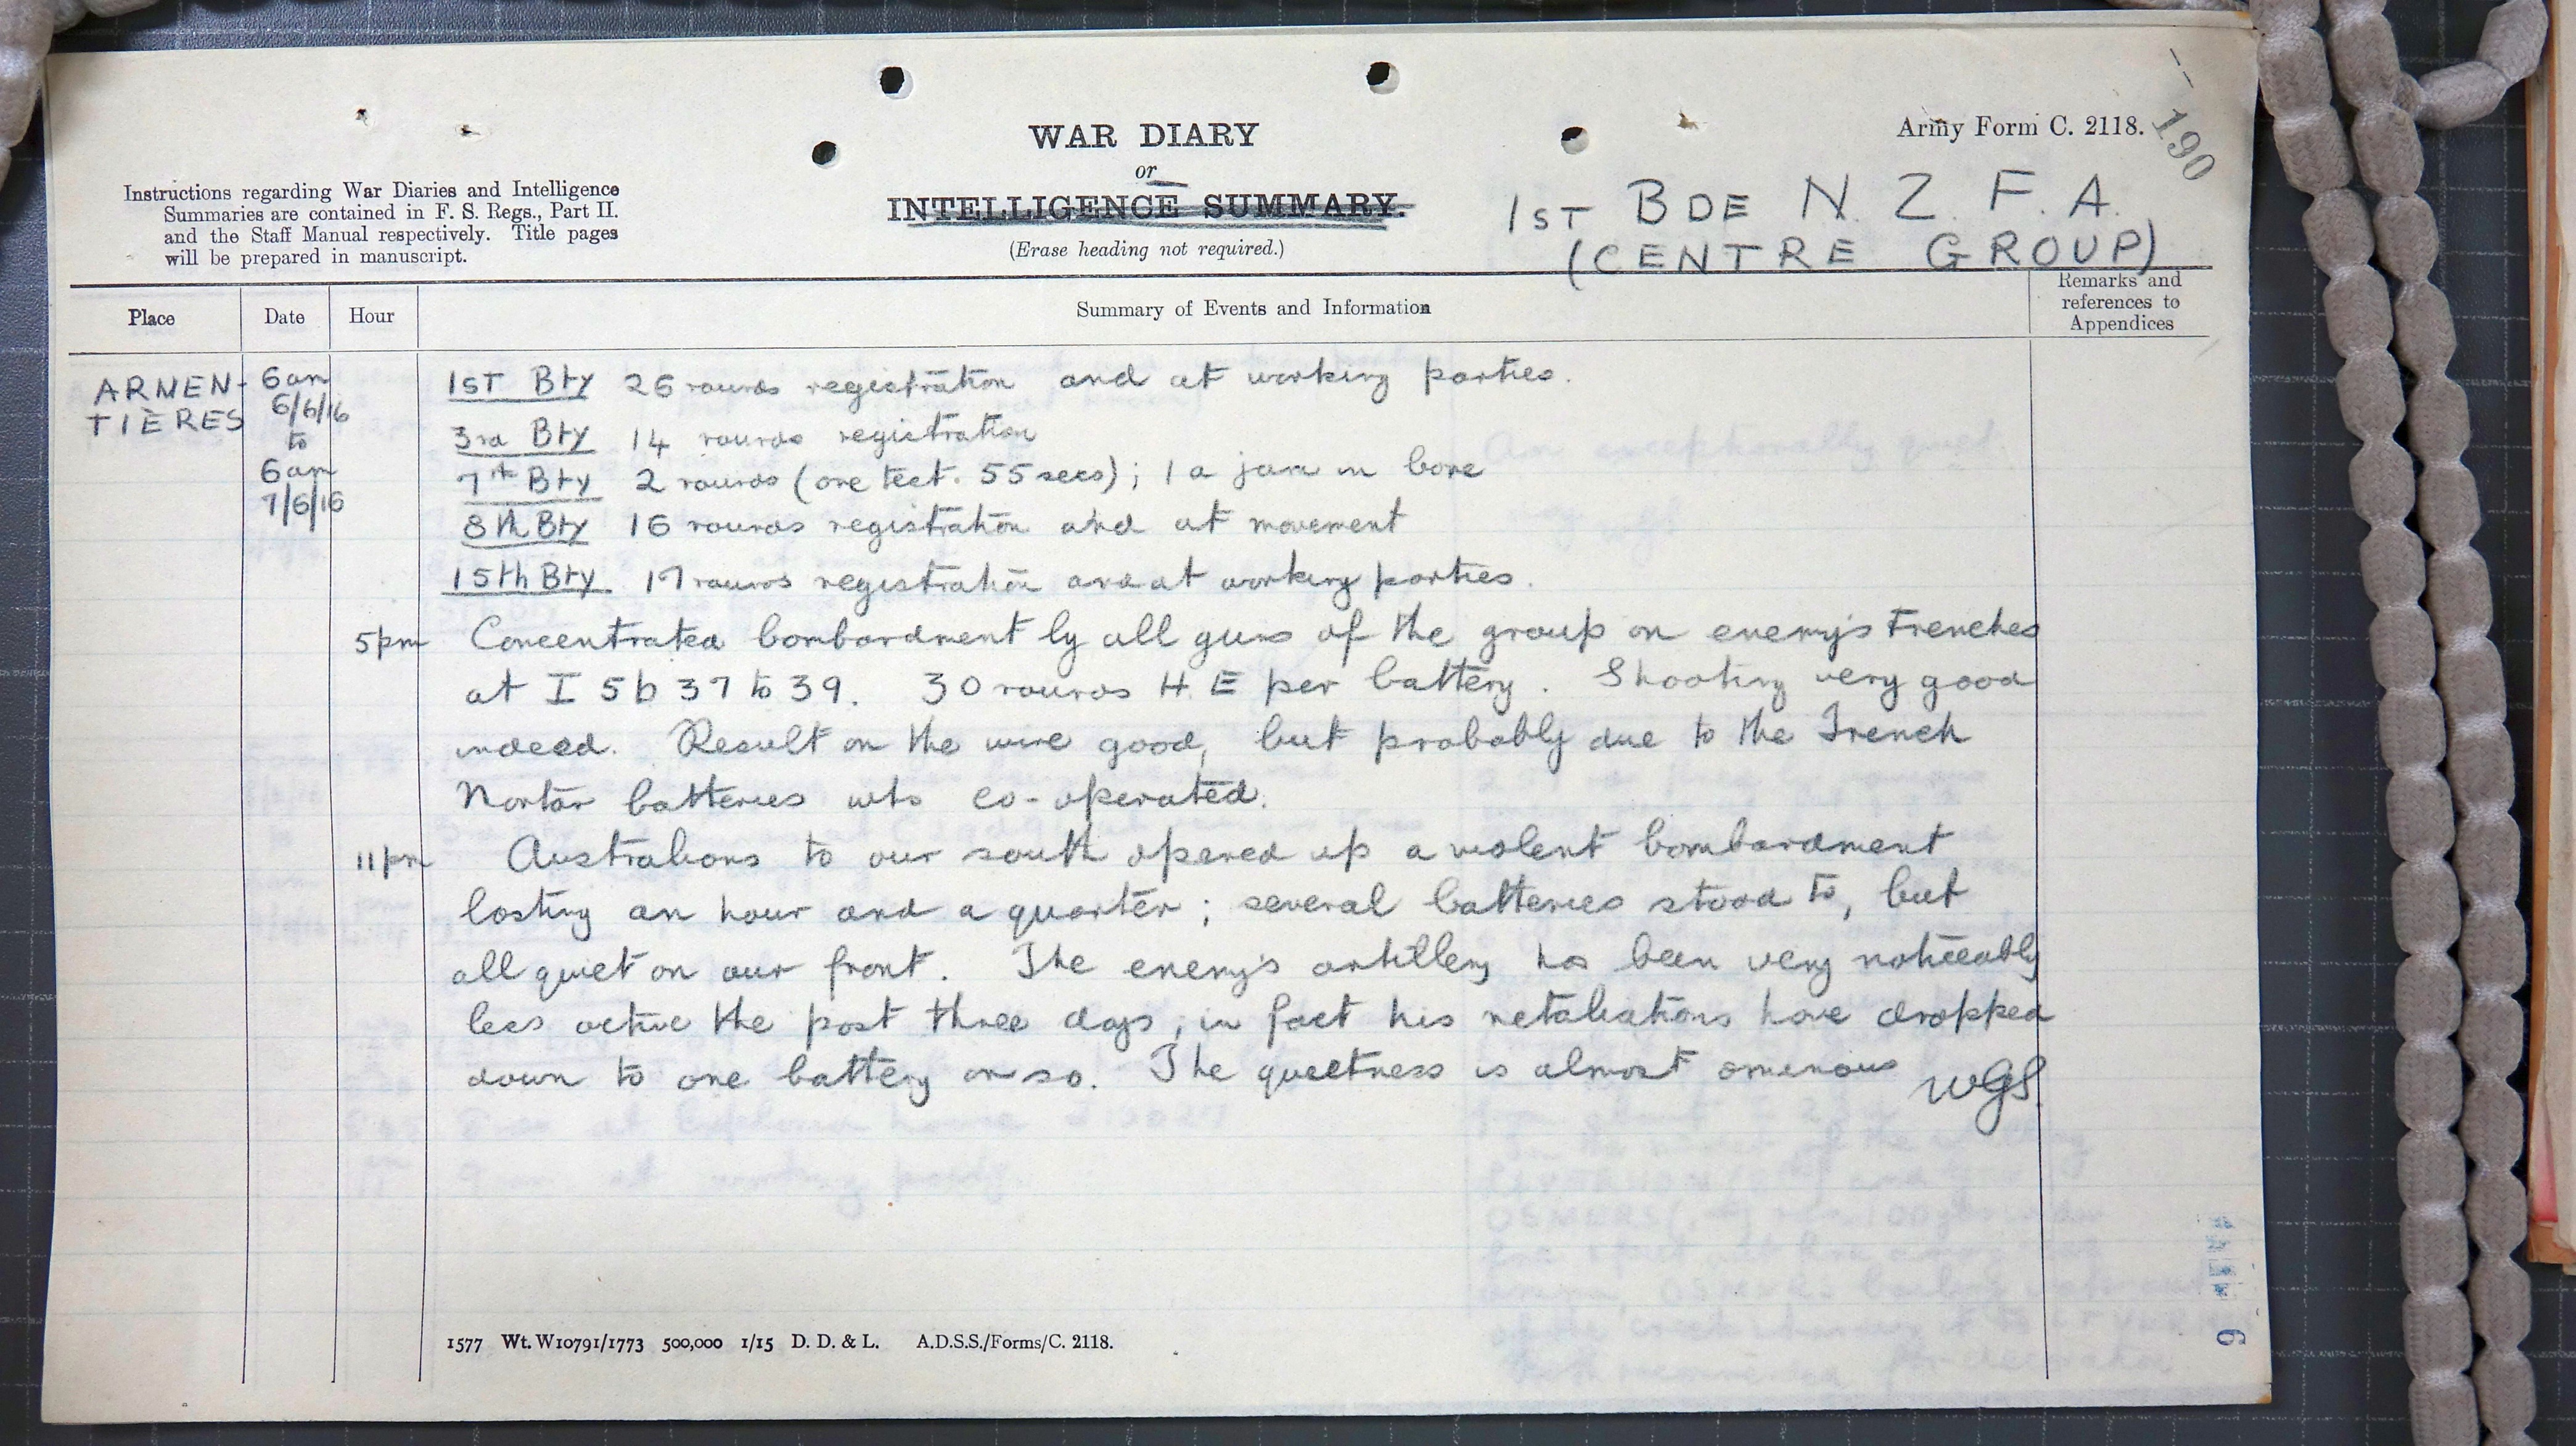 Army Form C. 2118.
190
WAR DIARY
or
INTELLIGENCE SUMMARY.
(Erase heading not required.)
Instructions regarding War Diaries and Intelligence
Summaries are contained in F. S. Regs., Part II.
and the Staff Manual respectively. Title pages
will be prepared in manuscript.
1ST BDE N. Z. F. A.
(CENTRE GROUP)
Place
Date
Hour
Summary of Events and Information
Remarks and
references to
Appendices
ARMEN-
TIERES
6am
6/6/16
to
6am
7/6/16
1ST Bty 26 rounds registration and at working parties.
3rd Bty 14 rounds registration
7th Bty 2 rounds (one test. 55 secs); 1 a jam in bore
8th Bty 16 rounds registration and at movement
15th Bty 17 rounds registration and at working parties.
5pm Concentrated bombardment by all guns of the group on enemy's trenches
at I 5 b 37 to 39. 30 rounds H.E per battery. Shooting very good
indeed. Result on the wire good, but probably due to the Trench
Mortar batteries who co-operated.
11pm Australians to our south opened up a violent bombardment
lasting an hour and a quarter; several batteries stood to, but
all quiet on our front. The enemy's artillery has been very noticeably
less active the past three days, in fact his retaliations have dropped
down to one battery or so. The quietness is almost ominous WGS
1577 Wt. W10791/1773 500,000 1/15 D. D. & L. A.D.S.S./Forms/C. 2118.
6